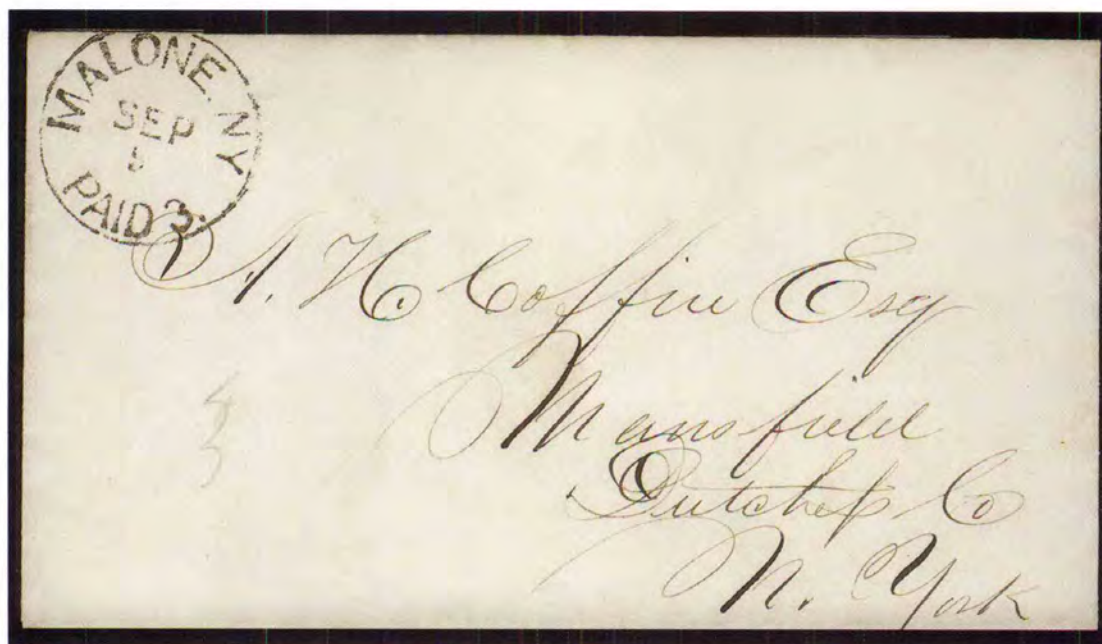 MALONE. NY
SEP
5
PAID 3.
A. H. Coffin Esq
Mansfield
Dutchess Co
N. York